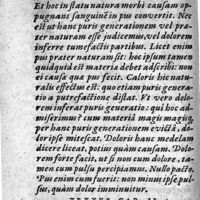 Et hoc in statu natura morbi causam op
pugnans sanguinē in pus conuertit. Nec
est ut hanc puris generationem vel præ-
ter naturam esse iudicemus, vel dolorem
inferre tumefactis partibus. Licet enim
pus præter naturam sit: hoc ipsum tamen
quidquid est materia debet adscribi: non
ei causæ qua pus fecit. Caloris hic natu-
ralis effectus est: quo etiam puris genera-
tio a putrefactione distat. Et vero dolo-
rem infert puris generatio: qui hoc ad-
miserimus? cum materia magis magisq́;
per hanc puris generationem euicta, do-
lor ipse mitescat. Doloris hanc medelam
dicere liceat, potius quàm causam. Dolo-
rem forte facit, ut si non cum dolore, ta-
men cum pulsu percipiamus. Nullo pacto.
Pus enim cum fuerit: non minus ipse pul-
sus, quàm dolor imminuitur.